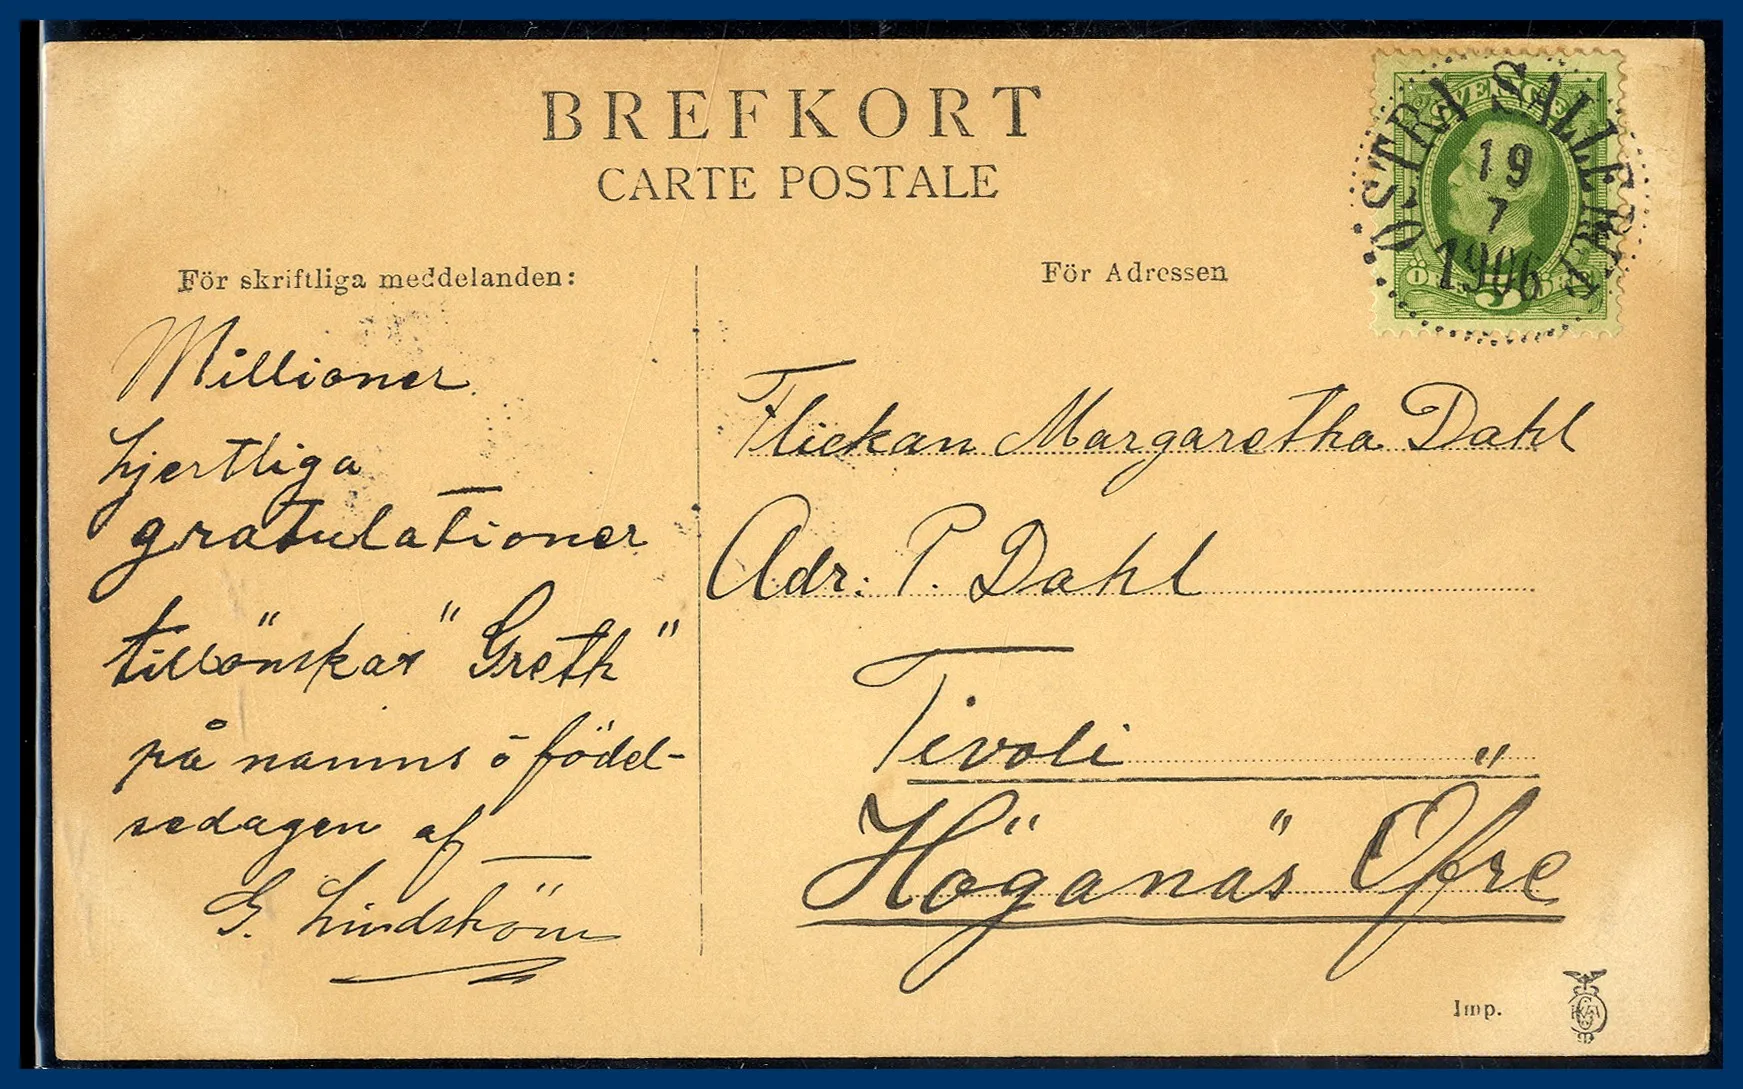 BREFKORT
CARTE POSTALE
SVERIGE
ÖSTRA SALLERUP
19
7
1906
För skriftliga meddelanden:
Millioner
hjertliga
gratulationer
tillönskas "Greth"
på namns ö födel-
sedagen af
G. Lindström
För Adressen
Flickan Margaretha Dahl
Adr: P. Dahl
Tivoli "
Höganäs Öfre
Imp.